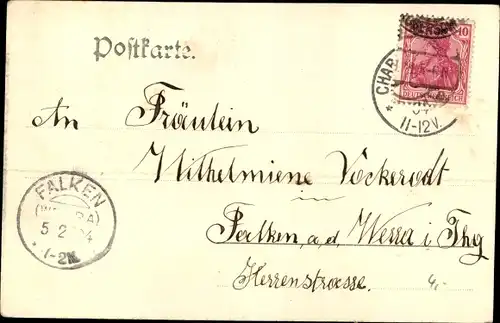 Postkarte.
10
DEUTSCHES REICH
CHAR
11-12V.
An Fräulein
Wilhelmiene Vockerodt
in
Falken a.d. Werra i. Thg
Herrenstrasse.
4,-
FALKEN
(WERRA)
5 2 04
1-2N.